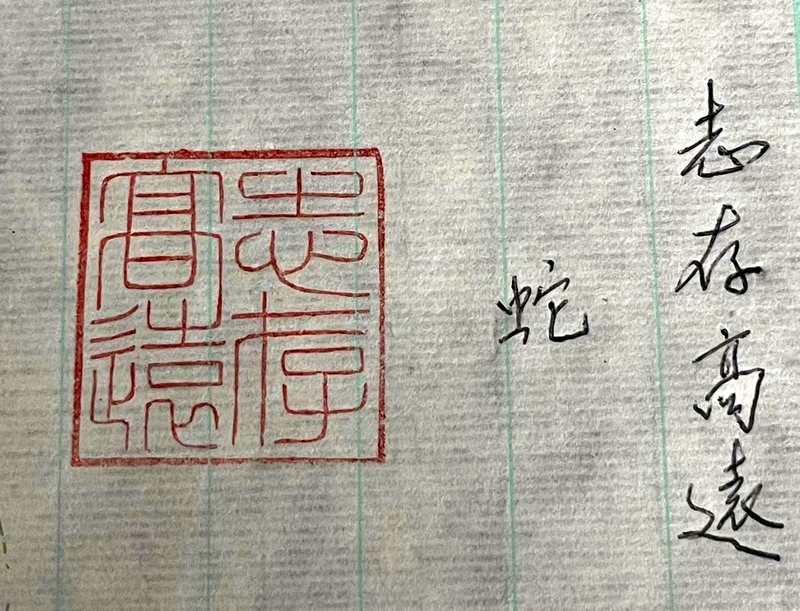 志存高遠
蛇
志存
高遠